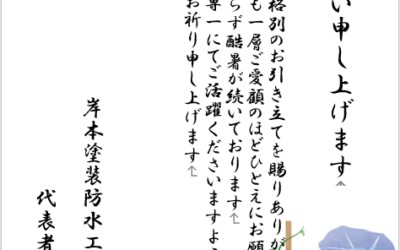 い申し上げます
格別のお引き立てを賜りありが
も一層ご愛顧のほどひとえにお願
らず酷暑が続いております
専一にてご活躍くださいますよう
お祈り申し上げます
岸本塗装防水工
代表者